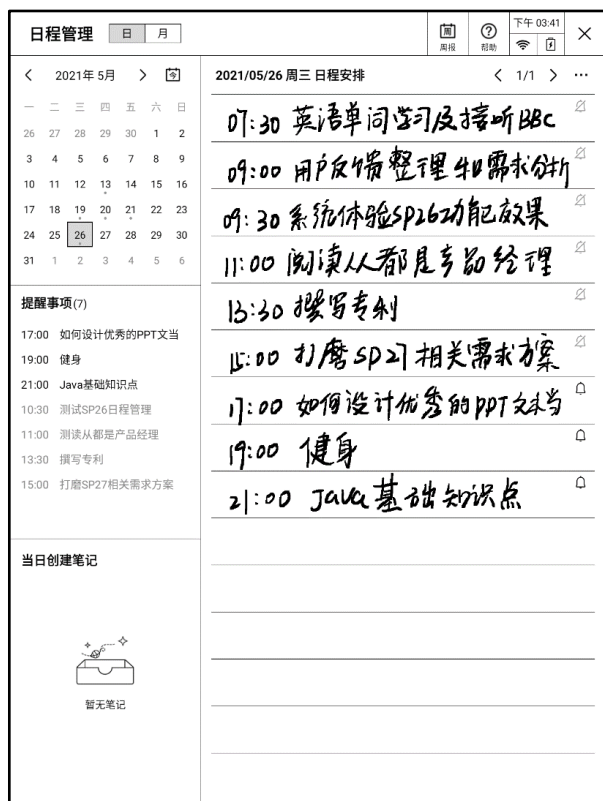 日程管理 日 月
周 周报
? 帮助
下午 03:41
2021年 5月 今
一 二 三 四 五 六 日
26 27 28 29 30 1 2
3 4 5 6 7 8 9
10 11 12 13 14 15 16
17 18 19 20 21 22 23
24 25 26 27 28 29 30
31 1 2 3 4 5 6
提醒事项(7)
17:00 如何设计优秀的PPT文当
19:00 健身
21:00 Java基础知识点
10:30 测试SP26日程管理
11:00 测读从都是产品经理
13:30 撰写专利
15:00 打磨SP27相关需求方案
当日创建笔记
暂无笔记
2021/05/26 周三 日程安排 1/1
07:30 英语单词学习及接听BBC
09:00 用户反馈整理和需求分析
09:30 系统体验SP26功能效果
11:00 阅读人人都是产品经理
13:30 撰写专利
15:00 打磨SP27相关需求方案
17:00 如何设计优秀的PPT文档
19:00 健身
21:00 Java基础知识点